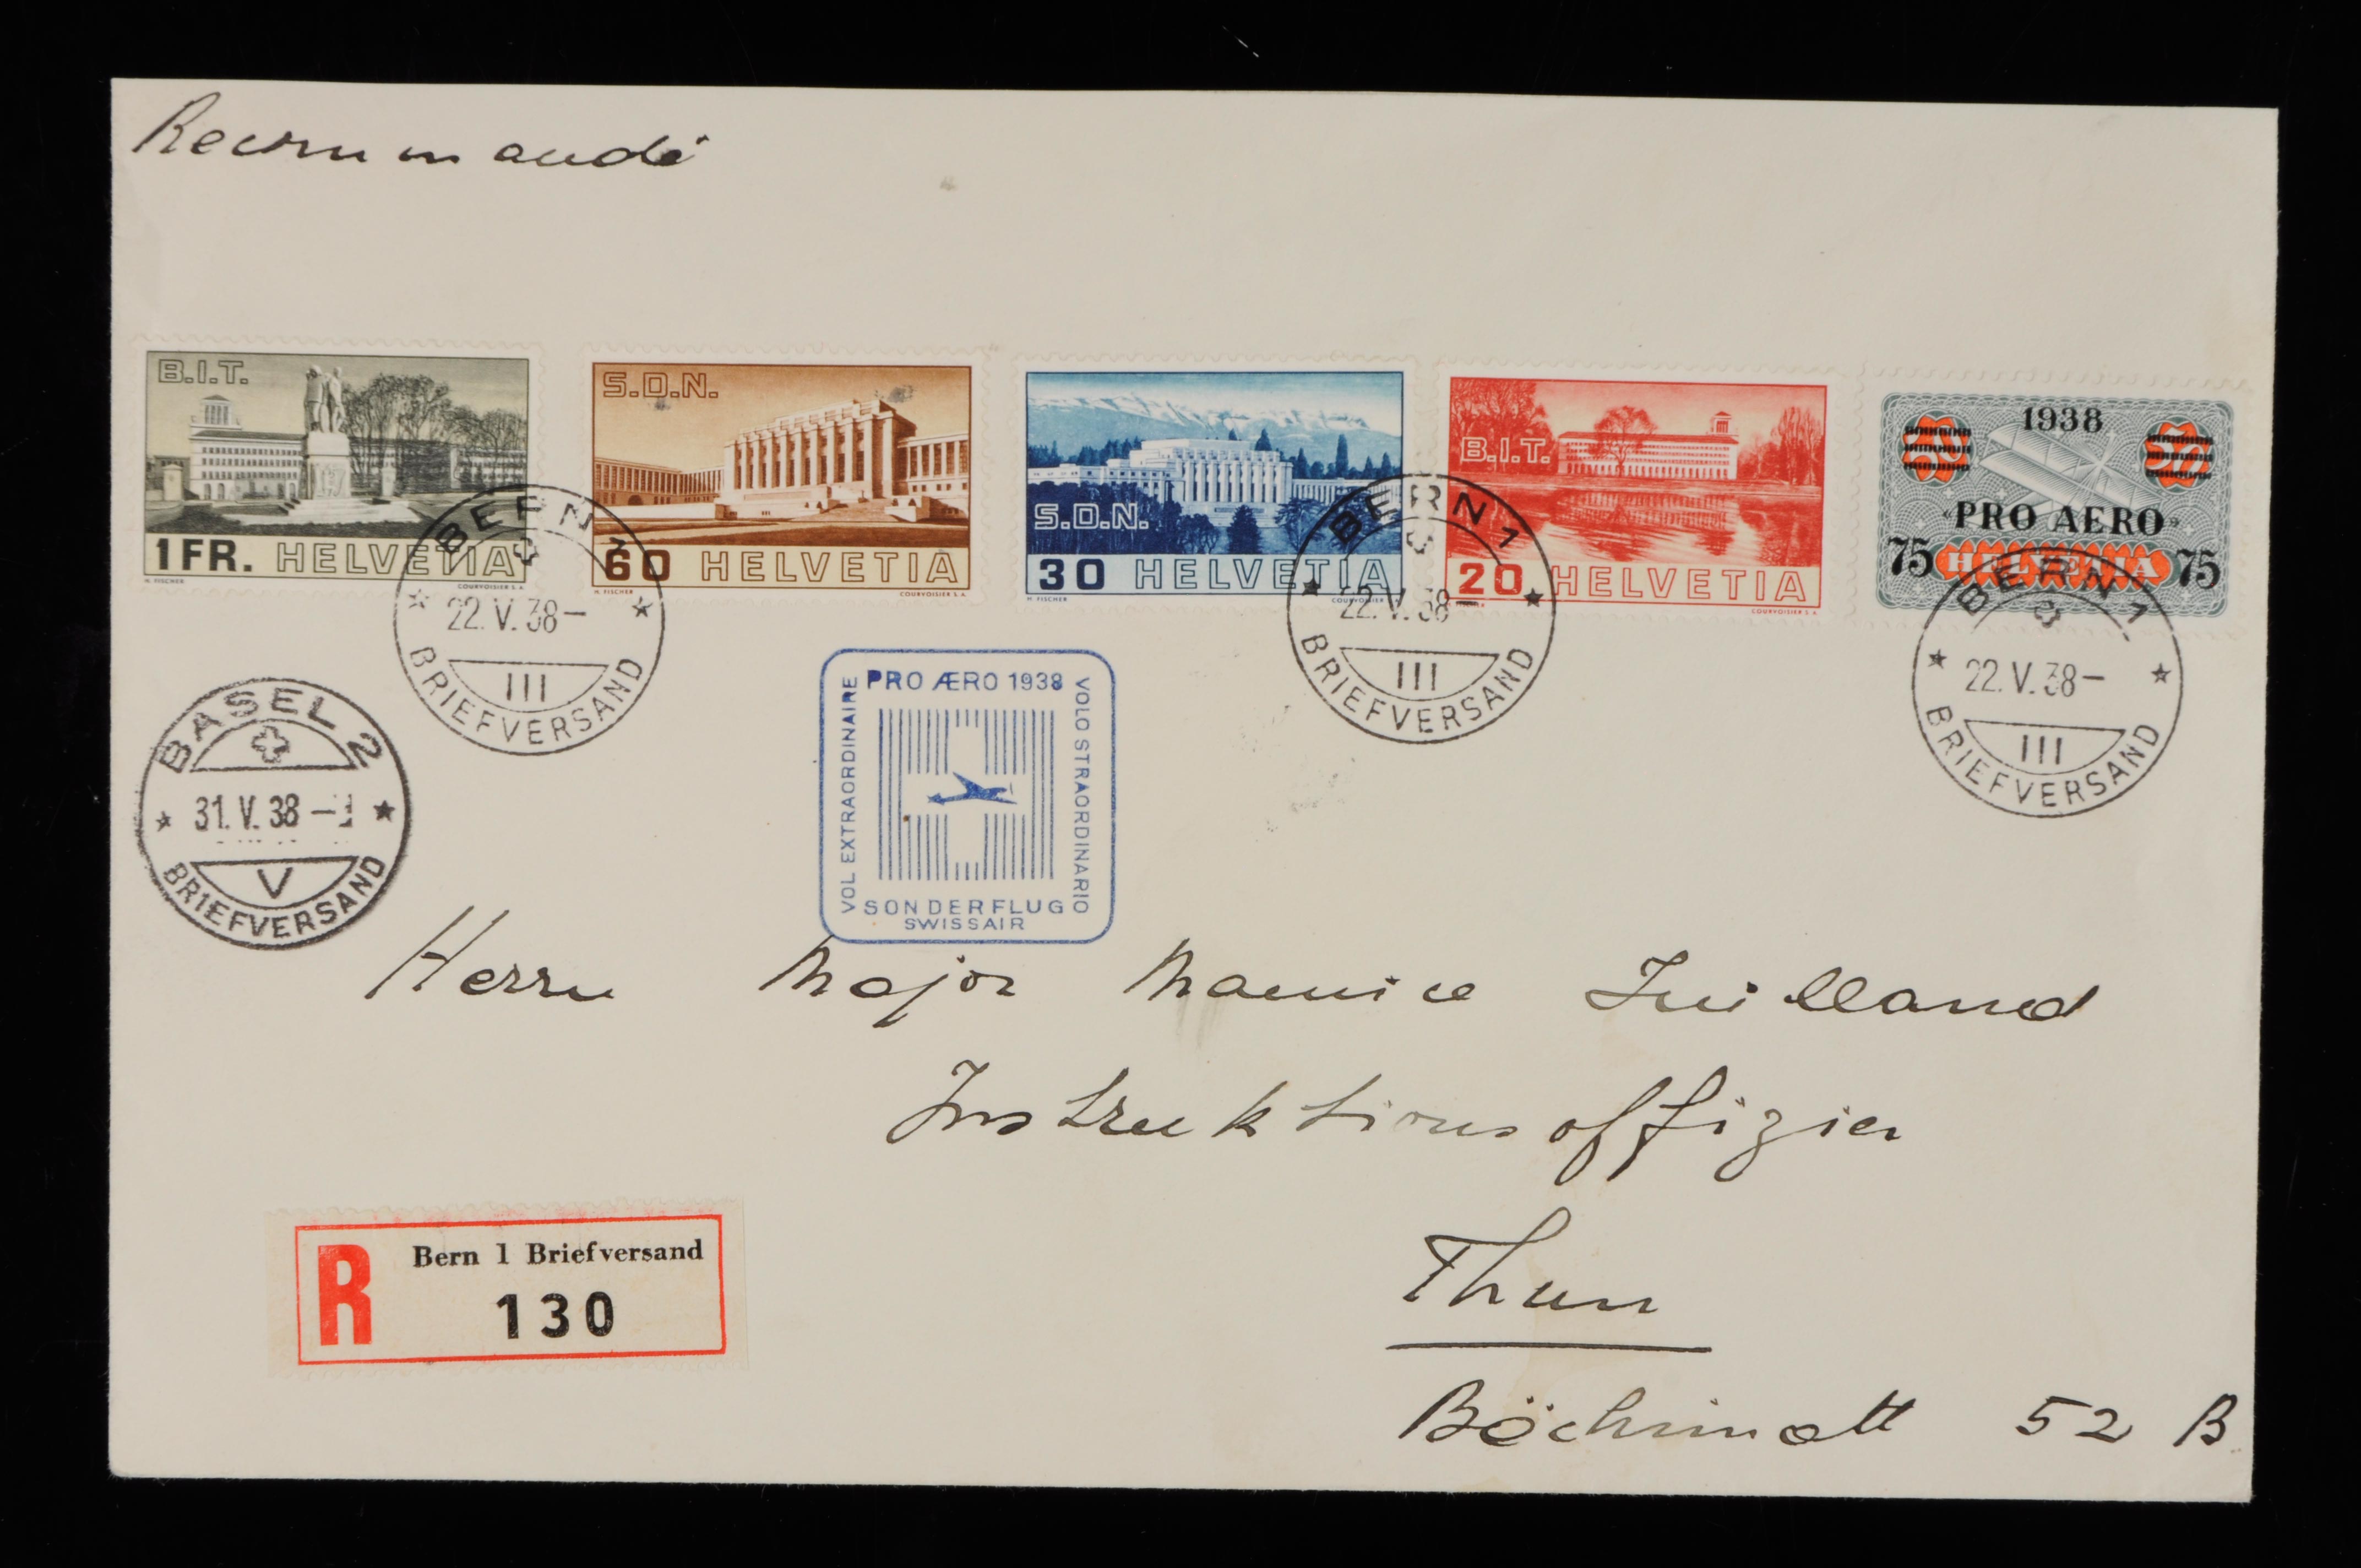 Recommandé
B.I.T.
1 FR. HELVETIA
H. FISCHER
COURVOISIER S.A.
S.D.N.
60 HELVETIA
H. FISCHER
COURVOISIER S.A.
S.D.N.
30 HELVETIA
H. FISCHER
B.I.T.
20 HELVETIA
COURVOISIER S.A.
1938
«PRO AERO»
75 HELVETIA 75
BERN 1
22.V.38–
III
BRIEFVERSAND
BERN 1
22.V.38–
III
BRIEFVERSAND
BERN 1
22.V.38–
III
BRIEFVERSAND
BASEL 2
31.V.38–
V
BRIEFVERSAND
PRO ÆRO 1938
VOL EXTRAORDINAIRE
VOLO STRAORDINARIO
SONDERFLUG
SWISSAIR
Herrn Major Maurice Juilland
Instruktionsoffizier
Thun
Bächimatt 52 B
R Bern 1 Briefversand
130